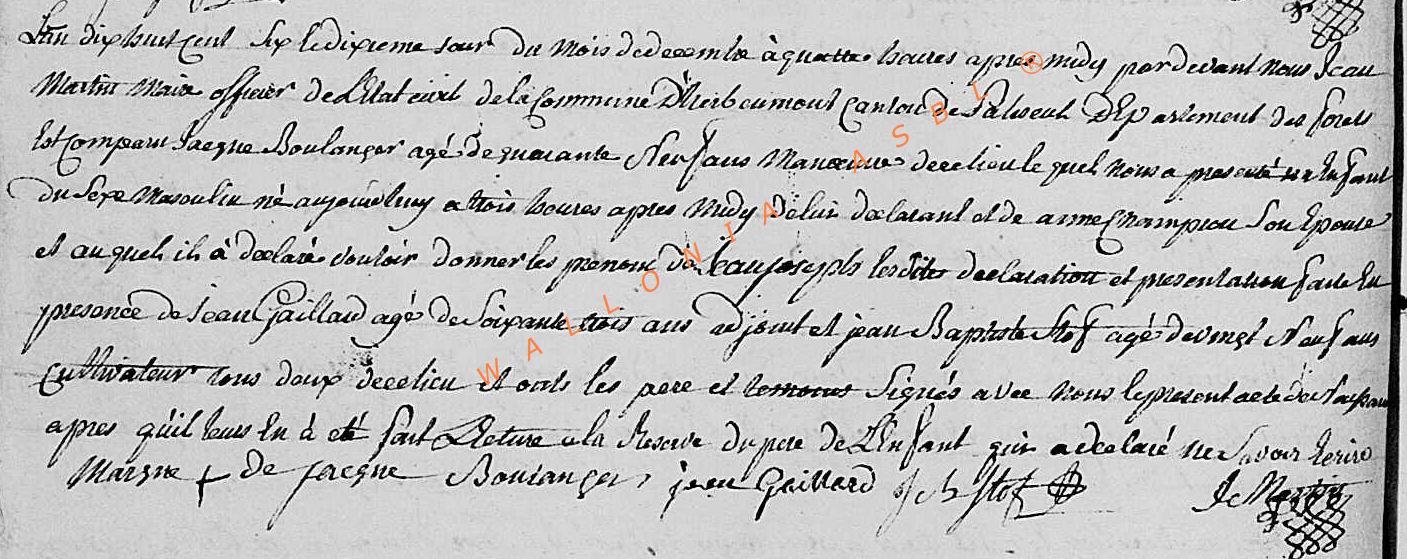 L'an dix huit cent six le dixieme jour du mois de decembre à quattre heures apres midy par devant nous Jean
Martin Maire officier de L'Etat civil de la Commune D'herbeumont Canton de Paliseul Département des forets
Est Comparu Jacque Boulanger agé de quarante Neuf ans Manœuvre de ce lieu le quel nous a presenté un Enfant
du Sexe Masculin né aujourd'huy a trois heures apres Midy de lui declarant et de anne Champion Son Epouse
et au quel il à declaré vouloir donner les prenom de Jean joseph lesdites declaration et presentation faite En
presence de Jean Gaillard agé de Soixante trois ans adjoint et jean Baptiste Stof agé de vingt Neuf ans
Cultivateur tous deux de ce lieu et onts les pere et temoins Signés avec nous le present acte de
apres qu'il leurs En à eté fait Lecture a la Reserve du pere de L'Enfant qui a declaré ne Savoir Ecrire
Marque + de Jacque Boulanger jean Gaillard J B Stof J Martin
WALLONIA ASBL ®